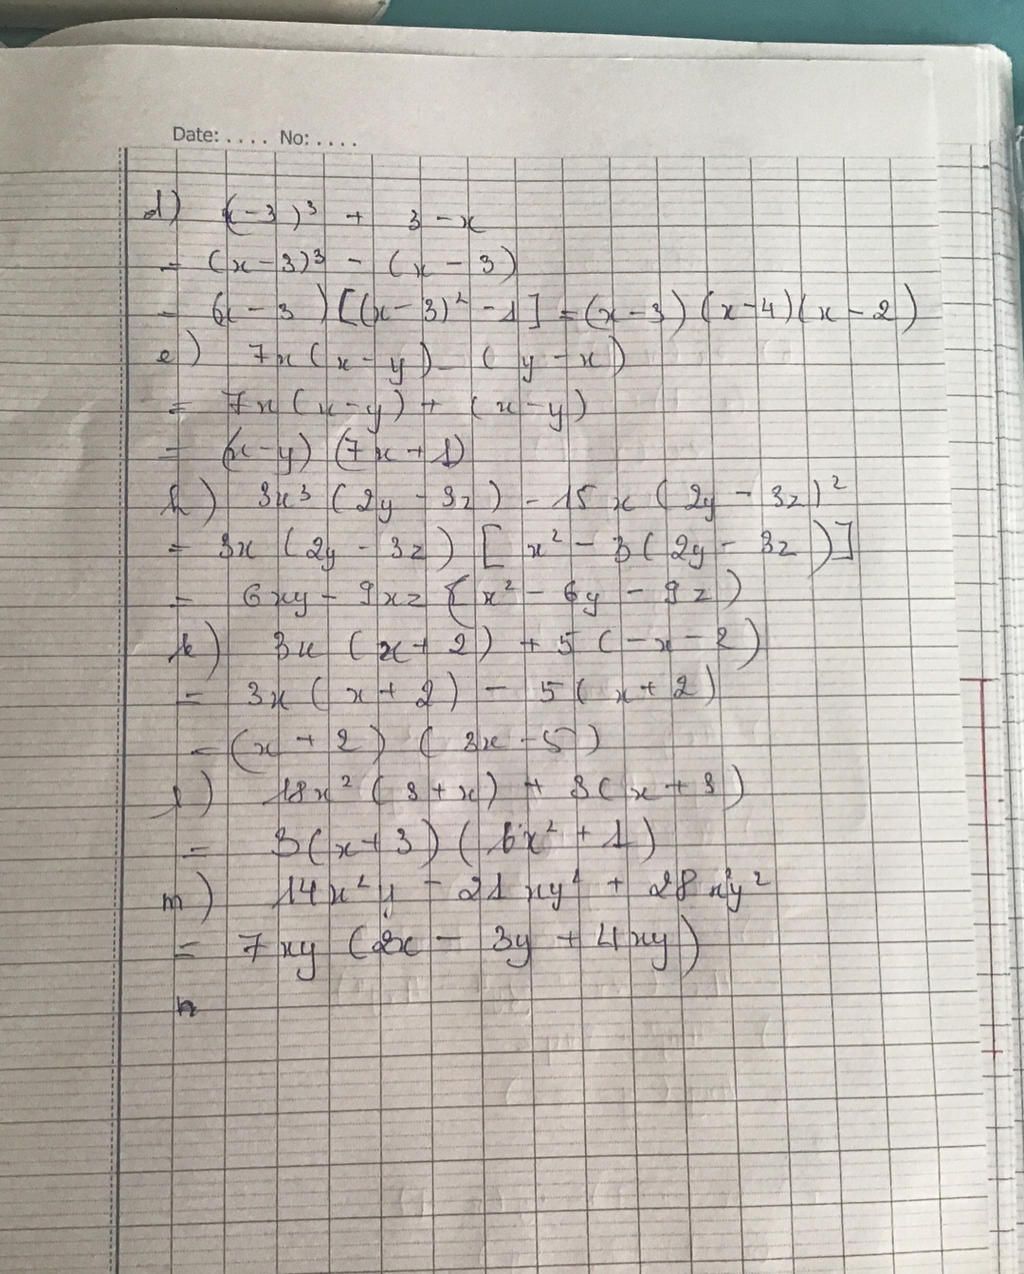 Date: .... No: ....
d) (x-3)³ + 3-x
= (x-3)³ - (x-3)
= (x-3)[(x-3)²-1] = (x-3)(x-4)(x-2)
e) 7x(x-y) - (y-x)
= 7x(x-y) + (x-y)
= (x-y)(7x+1)
h) 3x³(2y-3z) - 15x(2y-3z)²
= 3x(2y-3z)[x²-3(2y-3z)]
= 6xy-9xz(x²-6y-9z)
k) 3x(x+2) + 5(-x-2)
= 3x(x+2) - 5(x+2)
= (x+2)(3x-5)
l) 18x²(3+x) + 3(x+3)
= 3(x+3)(6x²+1)
m) 14x²y - 21xy² + 28x²y²
= 7xy(2x-3y+4xy)
n